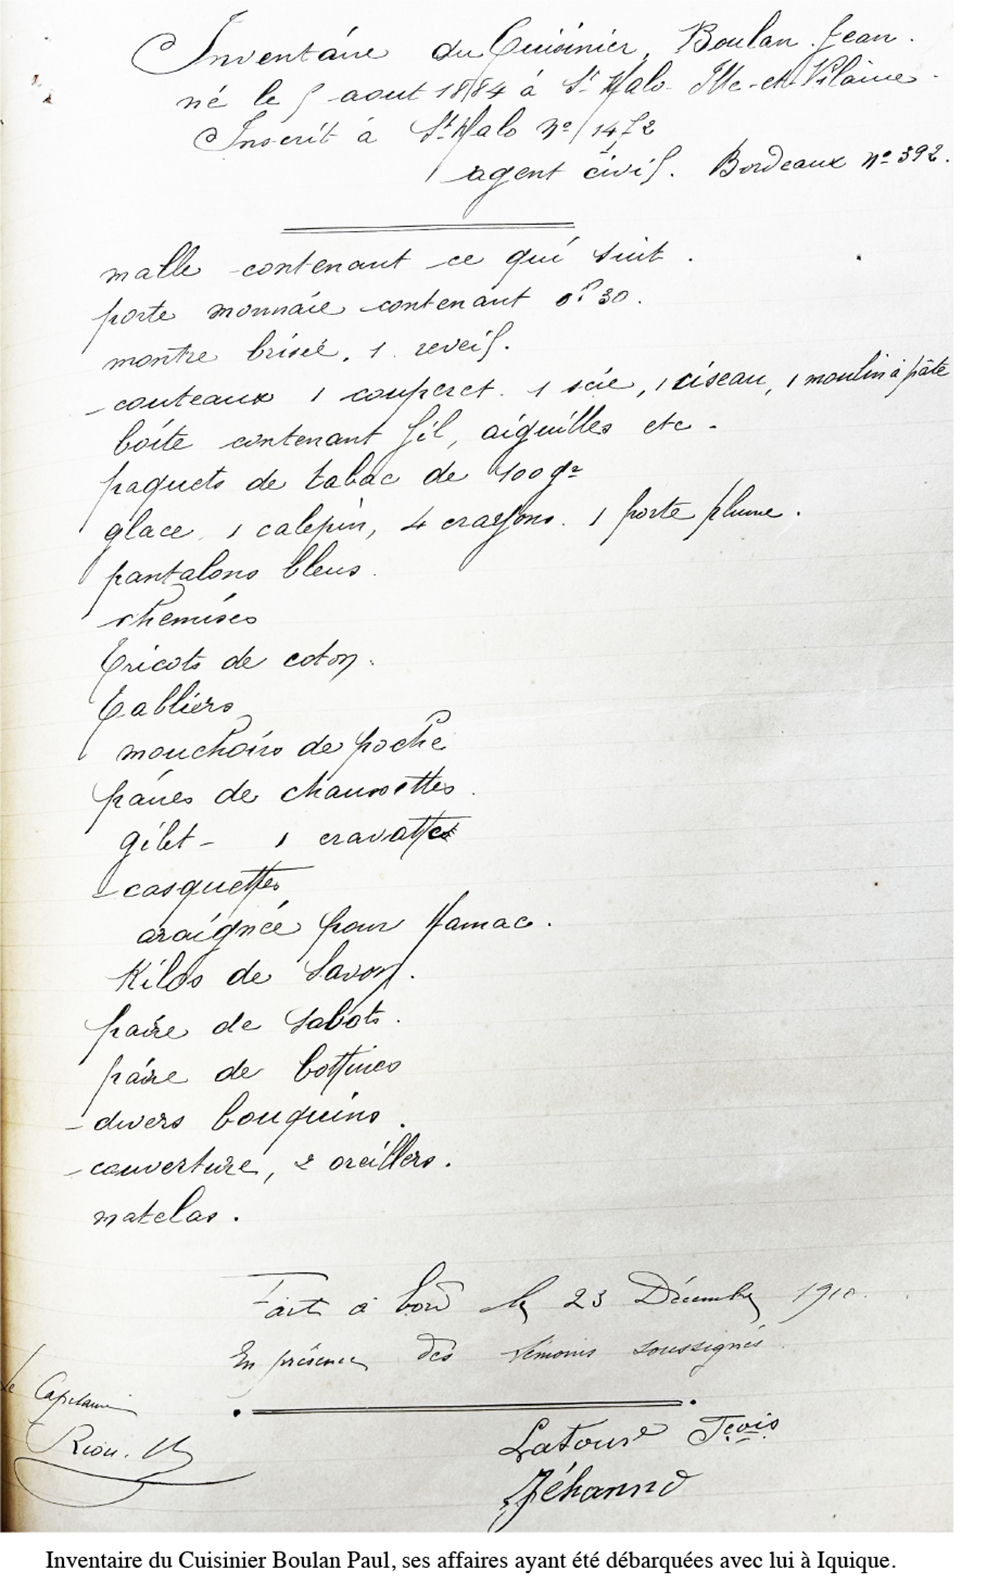 Inventaire du Cuisinier, Boulan Jean.
né le 5 aout 1884 à St Malo Ille-et-Vilaine.
Inscrit à St Malo No 1472
agent civil. Bordeaux no 392.
malle contenant ce qui suit.
porte monnaie contenant 0f30.
montre brisée, 1 reveil.
couteaux 1 couperet. 1 scie, 1 ciseau, 1 moulin à pâte
boîte contenant fil, aiguilles etc.
paquets de tabac de 100gr
glace, 1 calepin, 4 crayons. 1 porte plume.
pantalons bleus.
chemises
tricots de coton.
tabliers
mouchoirs de poche
paires de chaussettes.
gilet - 1 cravattes
casquettes
araignée pour Hamac.
Kilos de Savon.
paire de Sabots.
paire de bottines
divers bouquins.
couverture, 2 oreillers.
matelas.
Fait à bord le 23 Décembre 1910.
En présence des témoins soussignés
Le Capitaine
Riou
Latour Fcois
Jéhanno
Inventaire du Cuisinier Boulan Paul, ses affaires ayant été débarquées avec lui à Iquique.